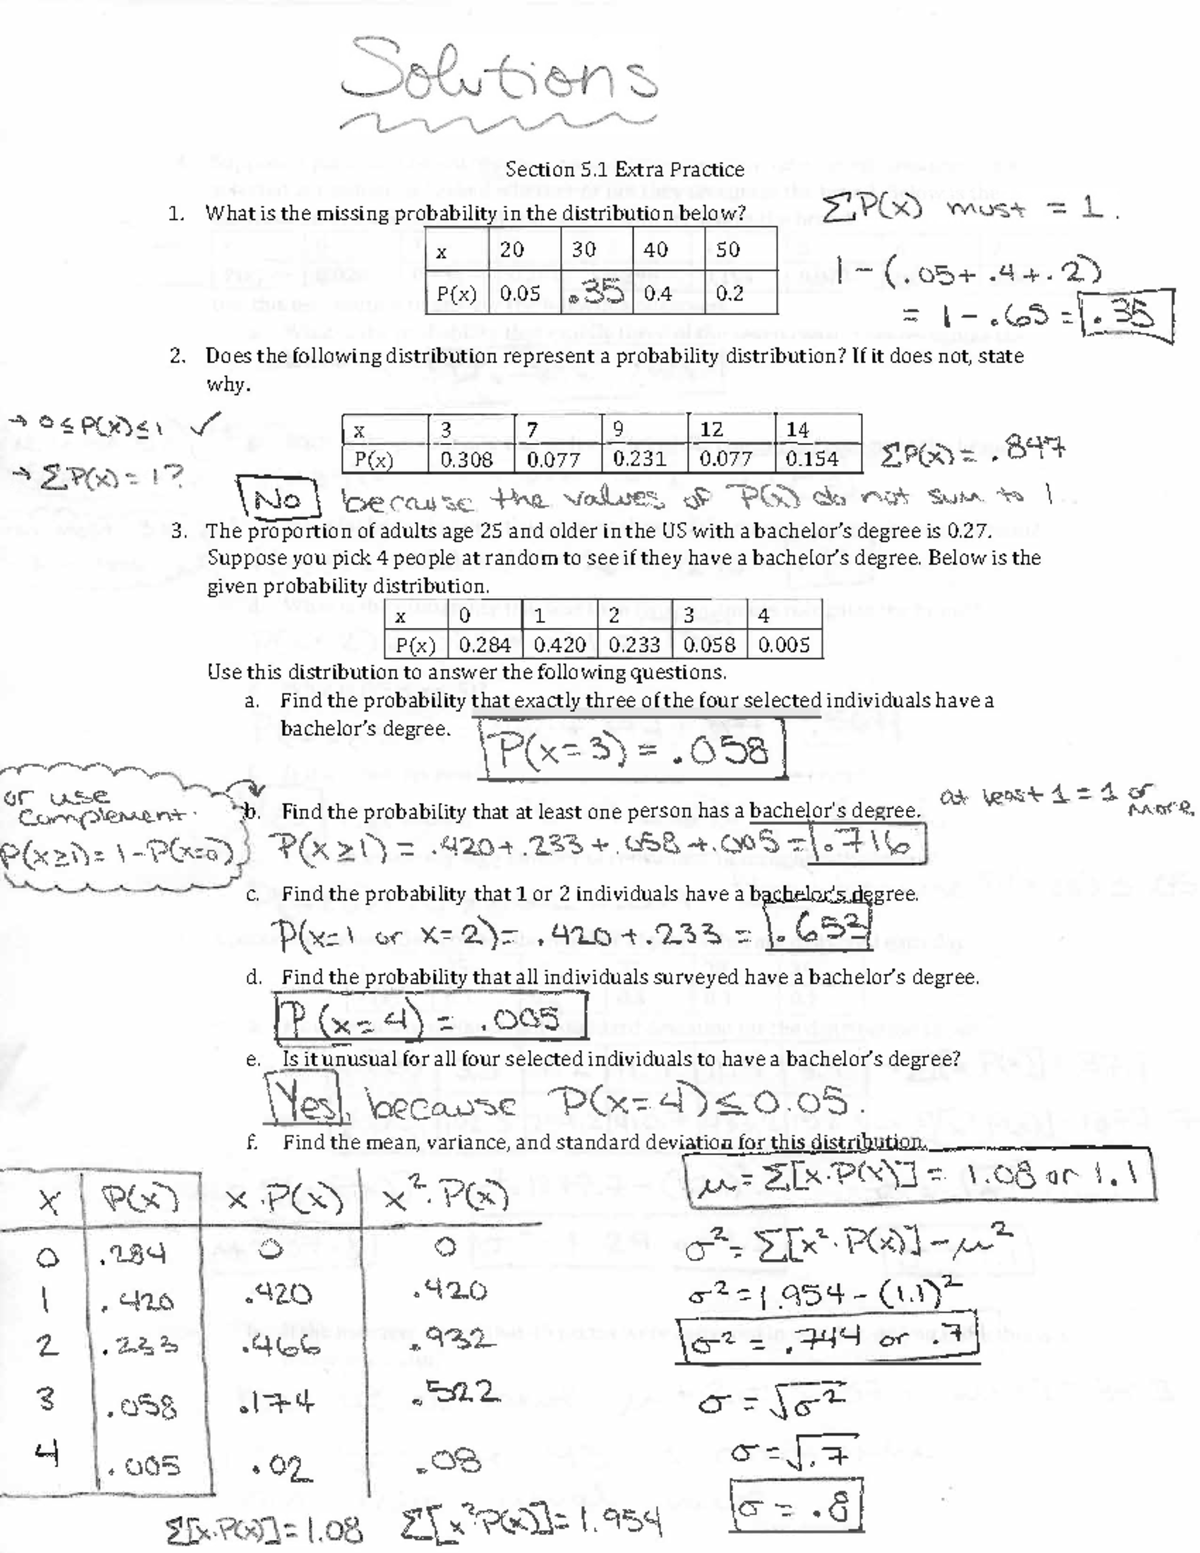 Solutions
Section 5.1 Extra Practice
1. What is the missing probability in the distribution below?
ΣP(x) must = 1.
x 20 30 40 50
P(x) 0.05 .35 0.4 0.2
1-(.05+.4+.2)
= 1-.65 = .35
2. Does the following distribution represent a probability distribution? If it does not, state
why.
→ 0≤P(x)≤1 ✓
→ ΣP(x)=1?
x 3 7 9 12 14
P(x) 0.308 0.077 0.231 0.077 0.154
ΣP(x)=.847
No because the values of P(x) do not sum to 1.
3. The proportion of adults age 25 and older in the US with a bachelor's degree is 0.27.
Suppose you pick 4 people at random to see if they have a bachelor's degree. Below is the
given probability distribution.
x 0 1 2 3 4
P(x) 0.284 0.420 0.233 0.058 0.005
Use this distribution to answer the following questions.
a. Find the probability that exactly three of the four selected individuals have a
bachelor's degree.
P(x=3) = .058
or use
Complement.
P(x≥1)=1-P(x=0)
b. Find the probability that at least one person has a bachelor's degree.
at least 1 = 1 or
more
P(x≥1) = .420+.233+.058+.005 = .716
c. Find the probability that 1 or 2 individuals have a bachelor's degree.
P(x=1 or x=2)= .420+.233 = .653
d. Find the probability that all individuals surveyed have a bachelor's degree.
P(x=4) = .005
e. Is it unusual for all four selected individuals to have a bachelor's degree?
Yes, because P(x=4)≤0.05.
f. Find the mean, variance, and standard deviation for this distribution.
x P(x) x·P(x) x²·P(x)
0 .284 0 0
1 .420 .420 .420
2 .233 .466 .932
3 .058 .174 .522
4 .005 .02 .08
Σ[x·P(x)]=1.08 Σ[x²P(x)]=1.954
μ=Σ[x·P(x)] = 1.08 or 1.1
σ²=Σ[x²·P(x)]-μ²
σ²=1.954-(1.1)²
σ² = .744 or .7
σ=√σ²
σ=√.7
σ = .8